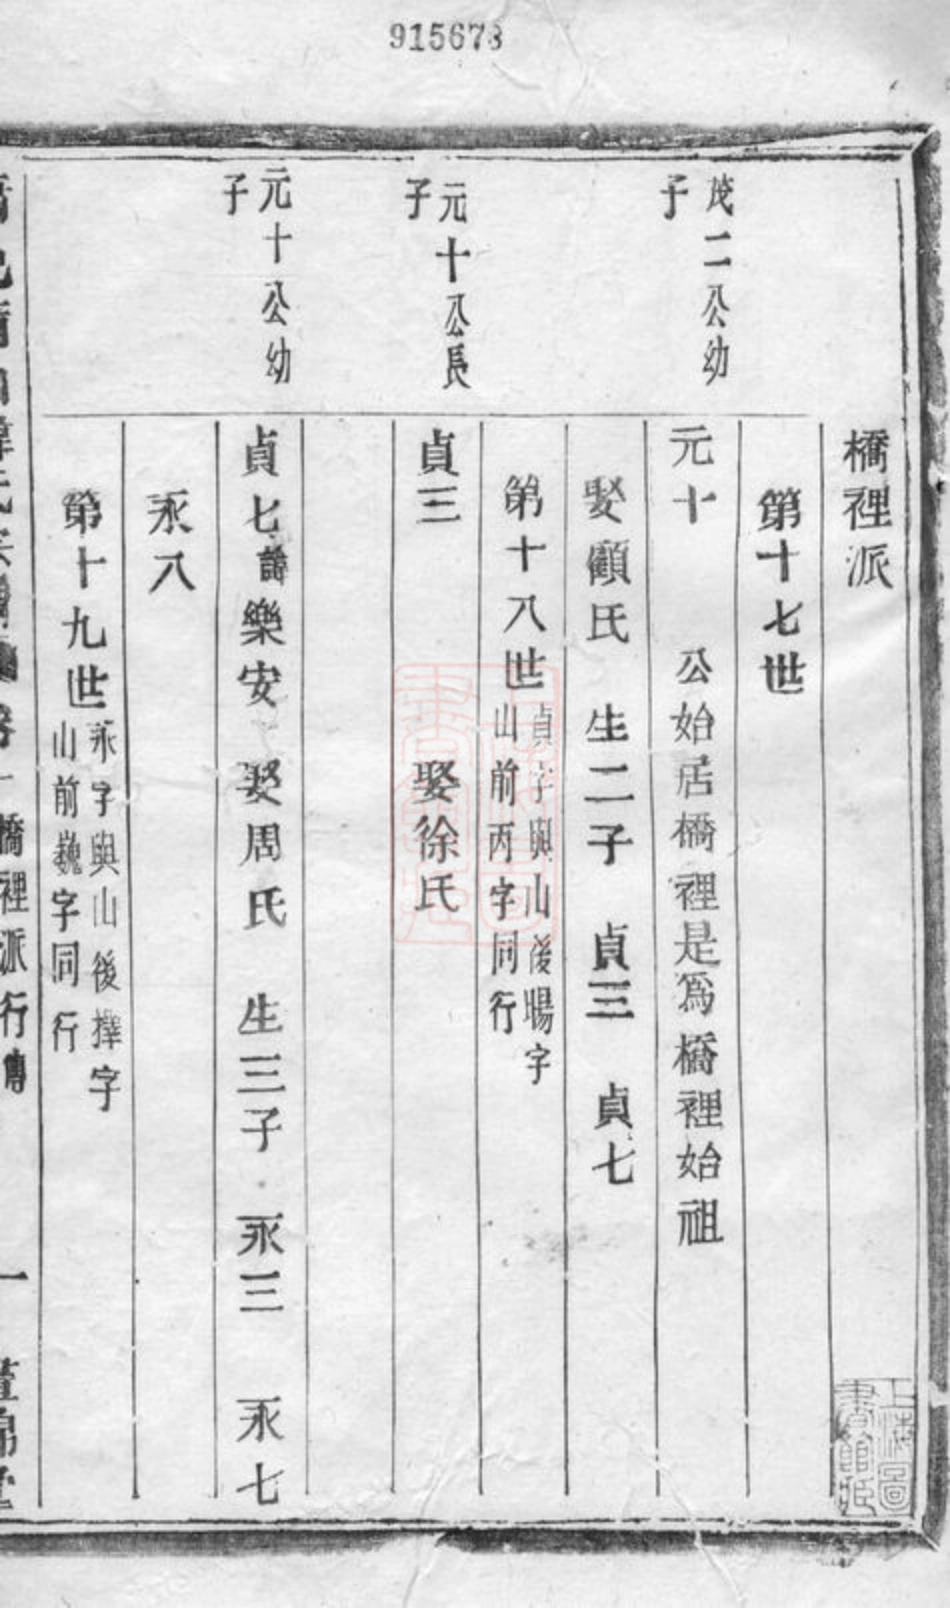 915678
橋裡派
第十七世
茂二公幼子
元十　公始居橋裡是爲橋裡始祖
娶顧氏　生二子　貞三　貞七
第十八世
貞字與山後暘字
山前丙字同行
元十公長子
貞三　娶徐氏
元十公幼子
貞七
諱
樂安　娶周氏　生三子　永三　永七
永八
第十九世
永字與山後擇字
山前巍字同行
橋裡派行傳
一
上海圖書館藏